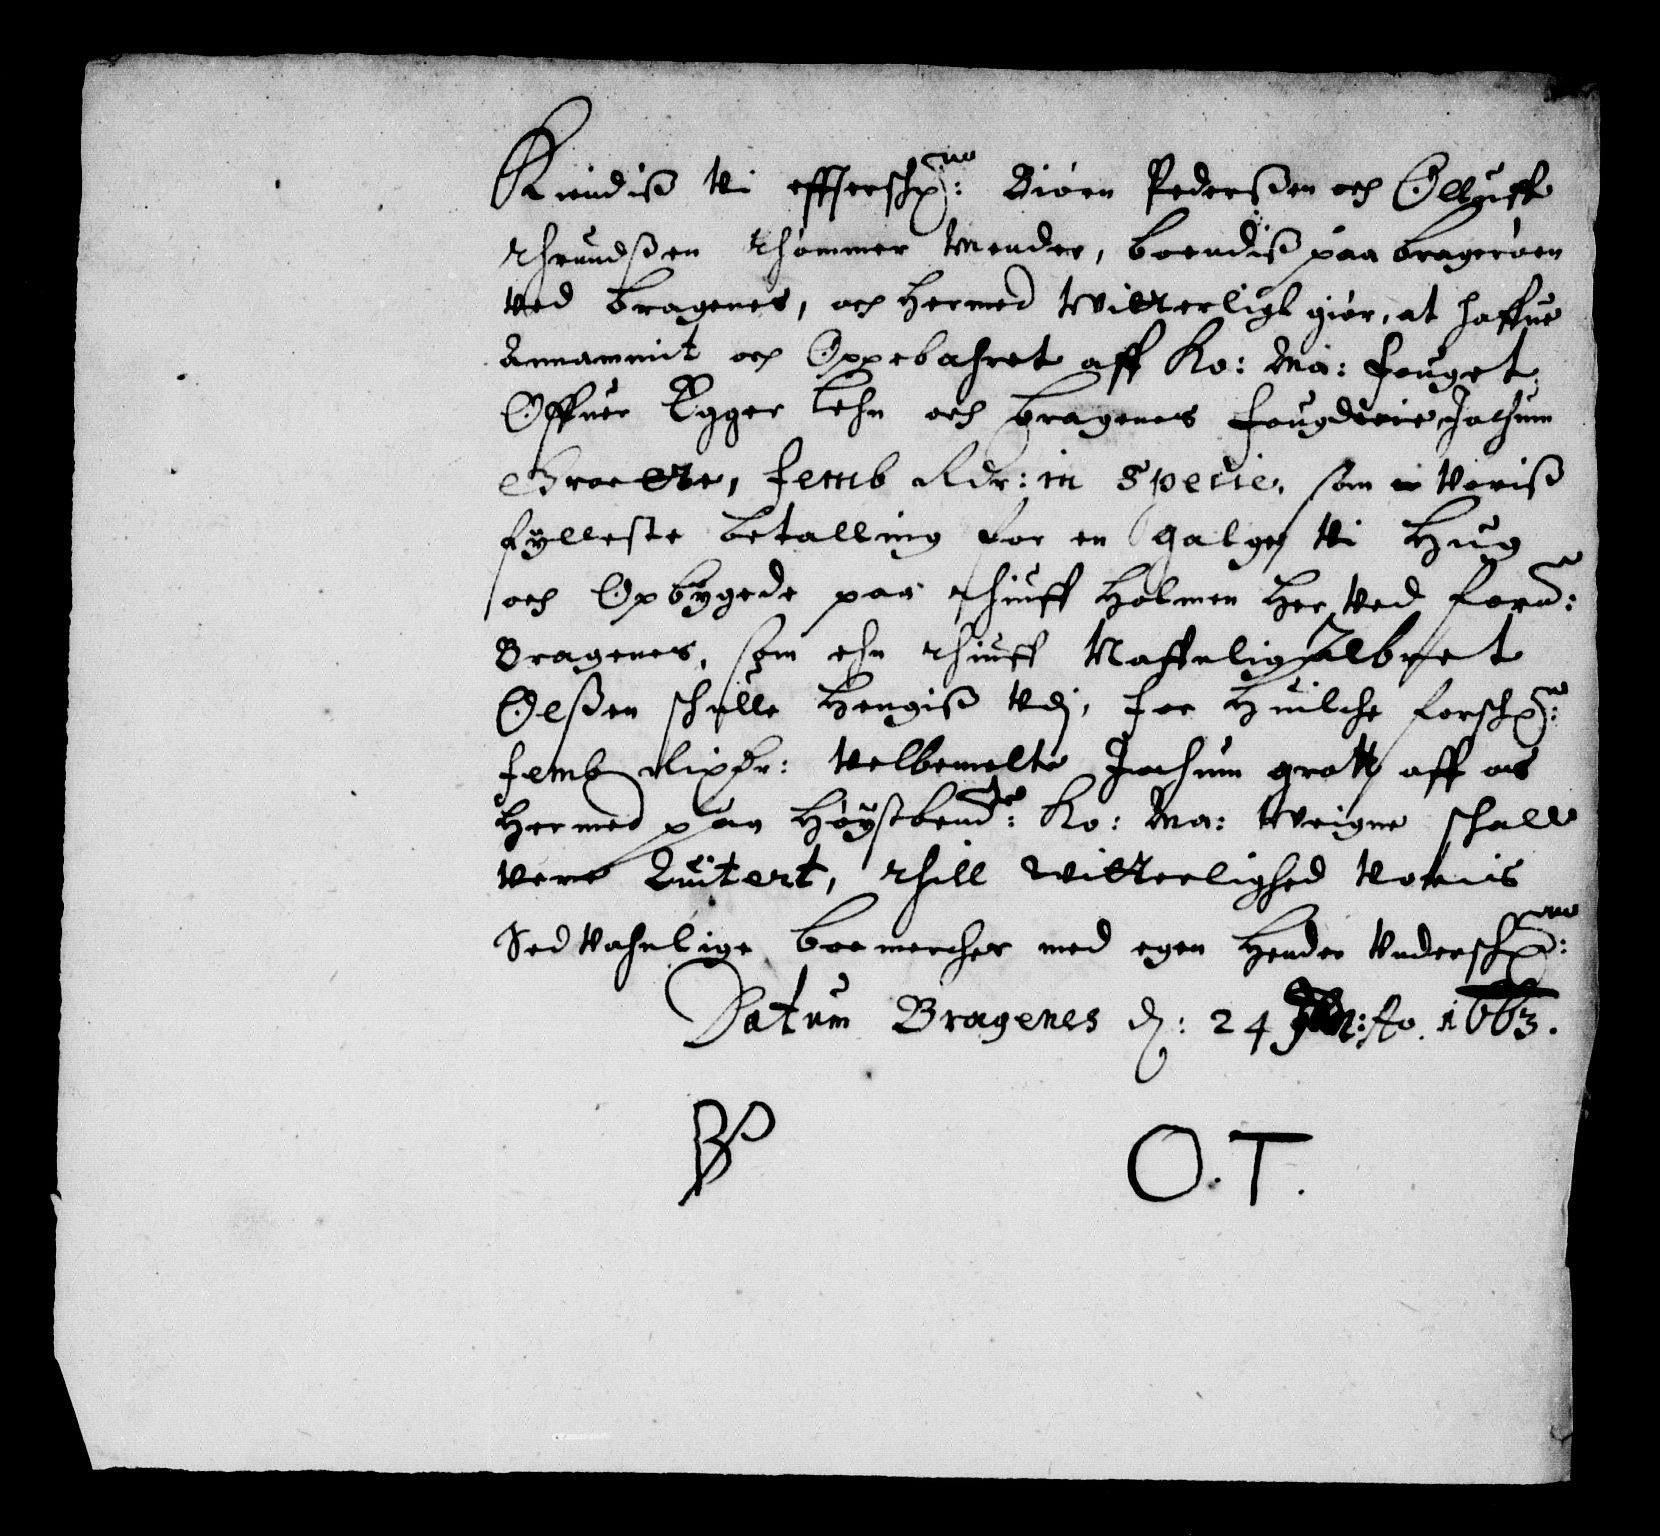 Kiendiß Wi effterschne: Biörn Pederßen och Olluff
thrundßen thömmer Mender, boendiß paa brageröen
Ved bragenes, och Hermed Witterligt giör, at haffue
Annammit och Oppebahret aff Ko: Ma: fouget
Offuer Egger lehn och bragenes fougderie Jochum
Groette, femb Rdr: in Specie, som er Voriß
fylleste betalling for en galge, Wi Hug
och Opbygede paa thiuff Holmen Her Ved forne:
Bragenes, som ehn thiuff Naffnlig Albret
Olßen schulle Hengiß Vdj, for Huilche forschne:
femb Rixdr: Velbemelte Jochum grott aff os
Hermed paa Höystbemte: Ko: Ma: Weigne schall
Vere Quitert, thill Witterlighed Voris
Sedvahnlige boemercher med egen Hender Underschne:
Datum Bragenes d: 24 : Ao. 1663.
BP O. T.